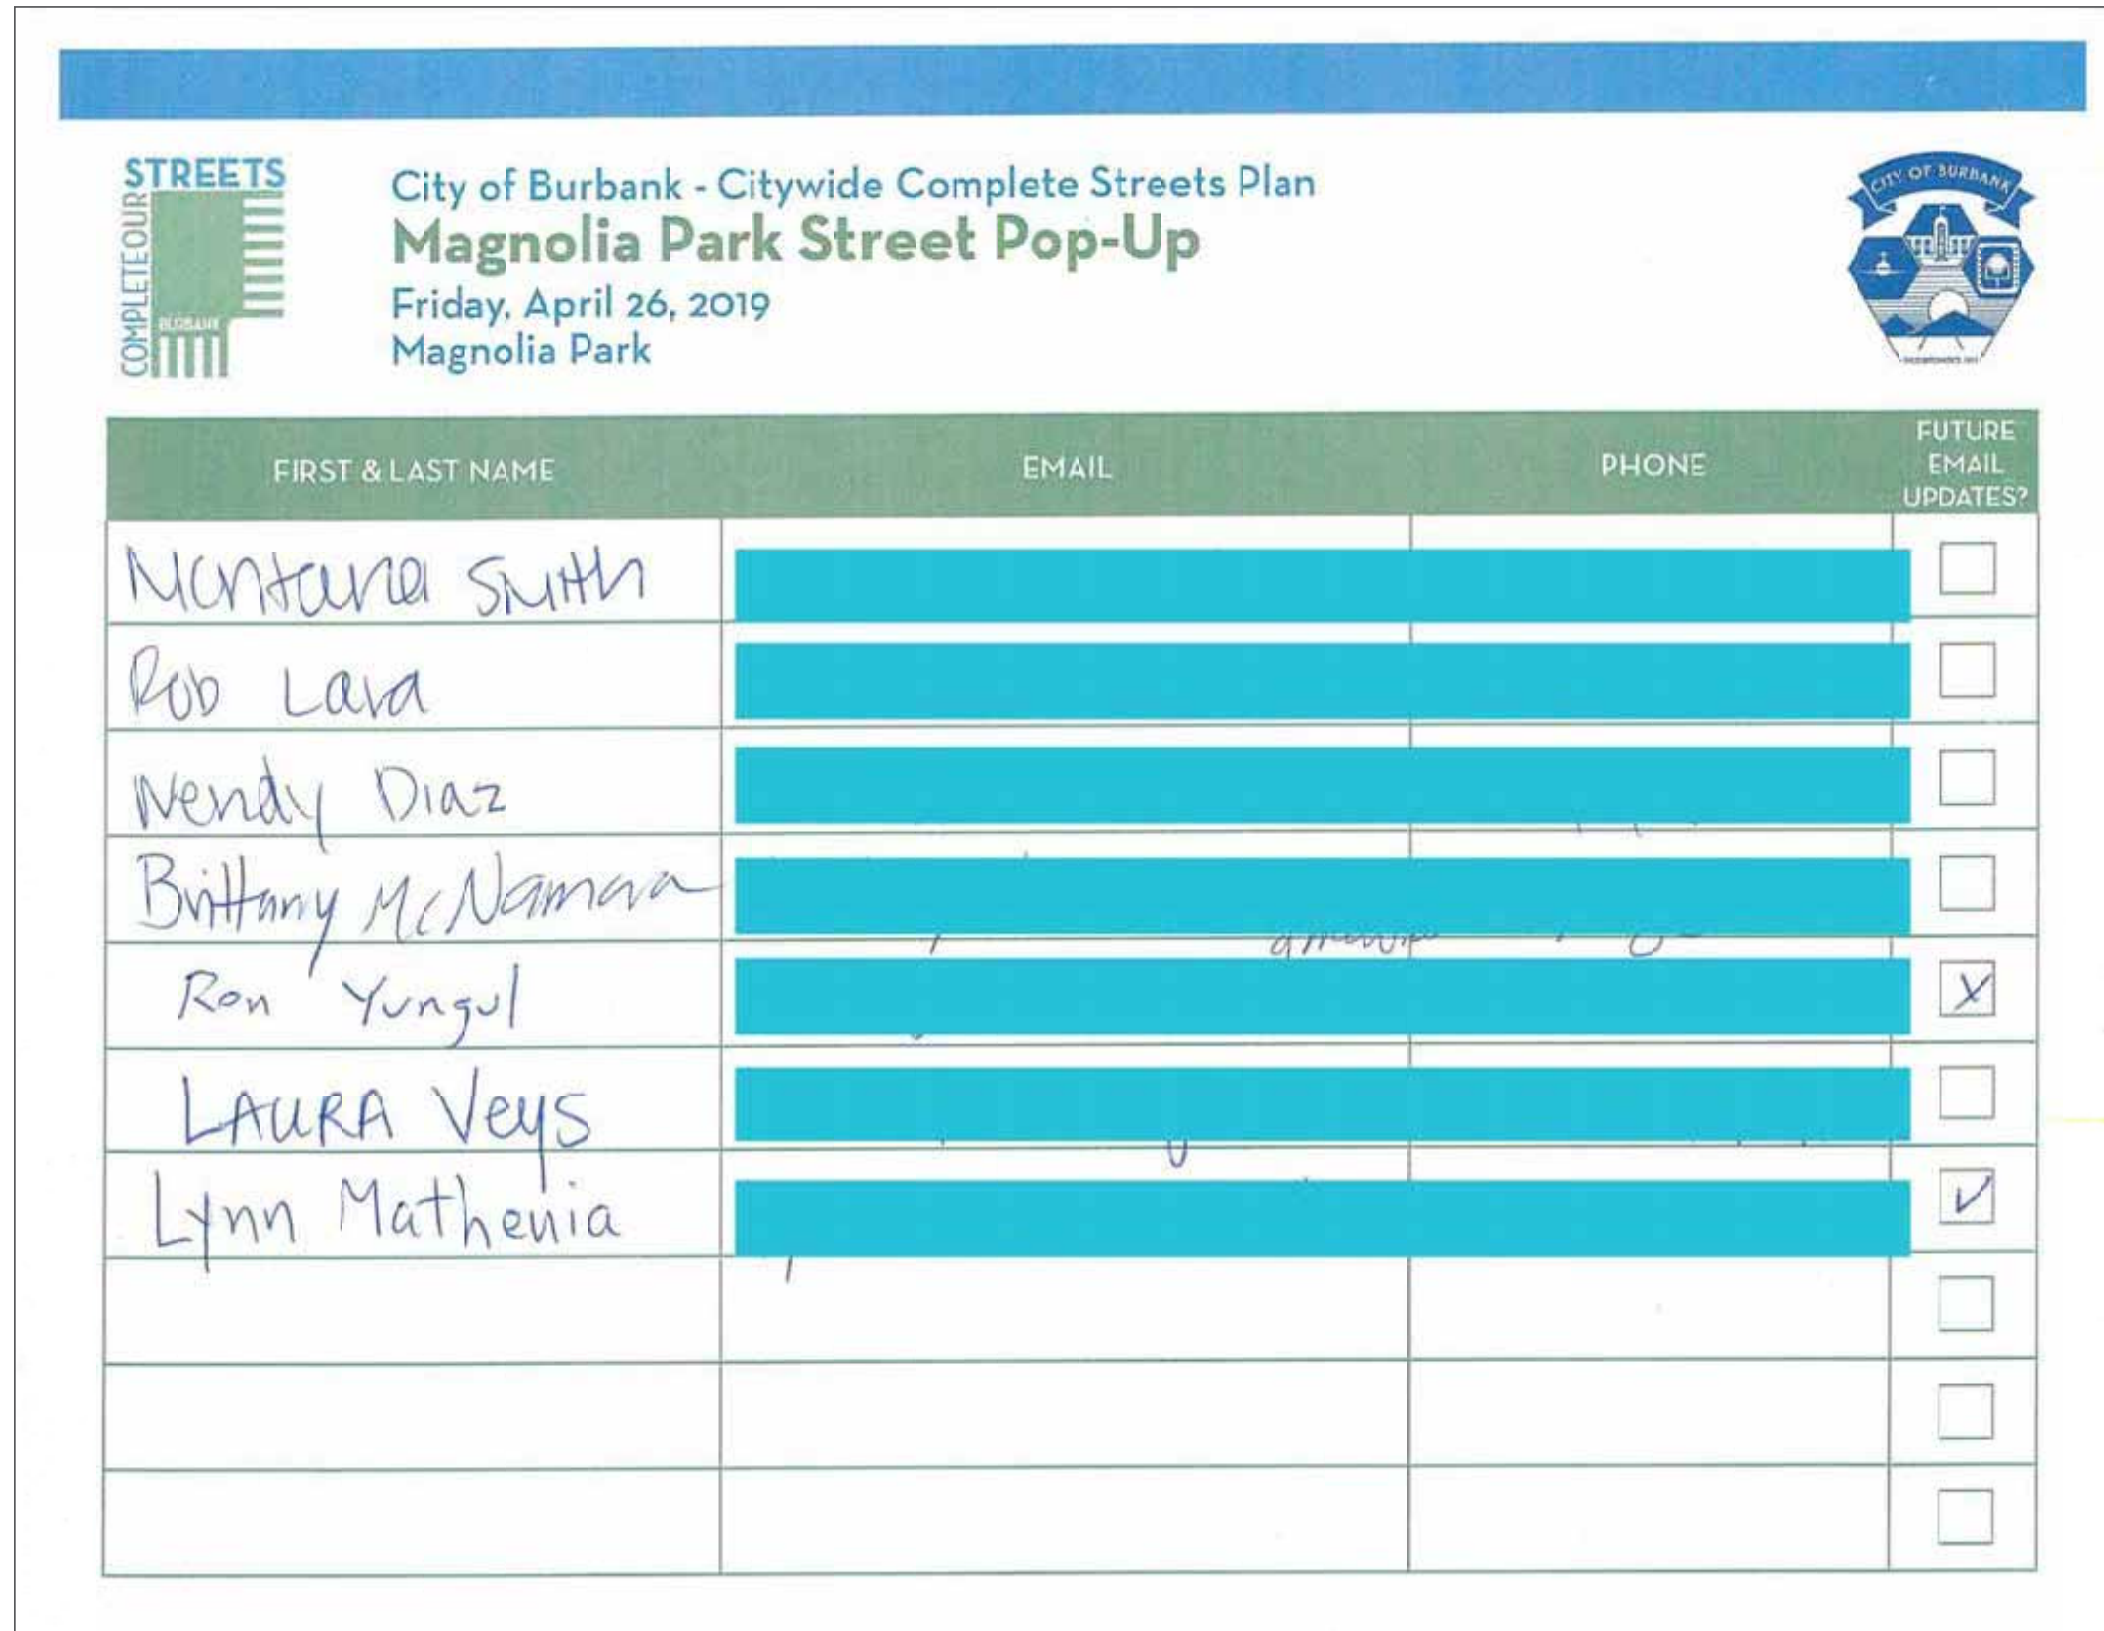 STREETS
COMPLETEOUR
BURBANK
City of Burbank - Citywide Complete Streets Plan
Magnolia Park Street Pop-Up
Friday, April 26, 2019
Magnolia Park
CITY OF BURBANK
FIRST & LAST NAME EMAIL PHONE FUTURE EMAIL UPDATES?
Montana Smith
Rob Lara
Wendy Diaz
Brittany McNamara
Ron Yungul X
LAURA Veys
Lynn Mathenia ✓